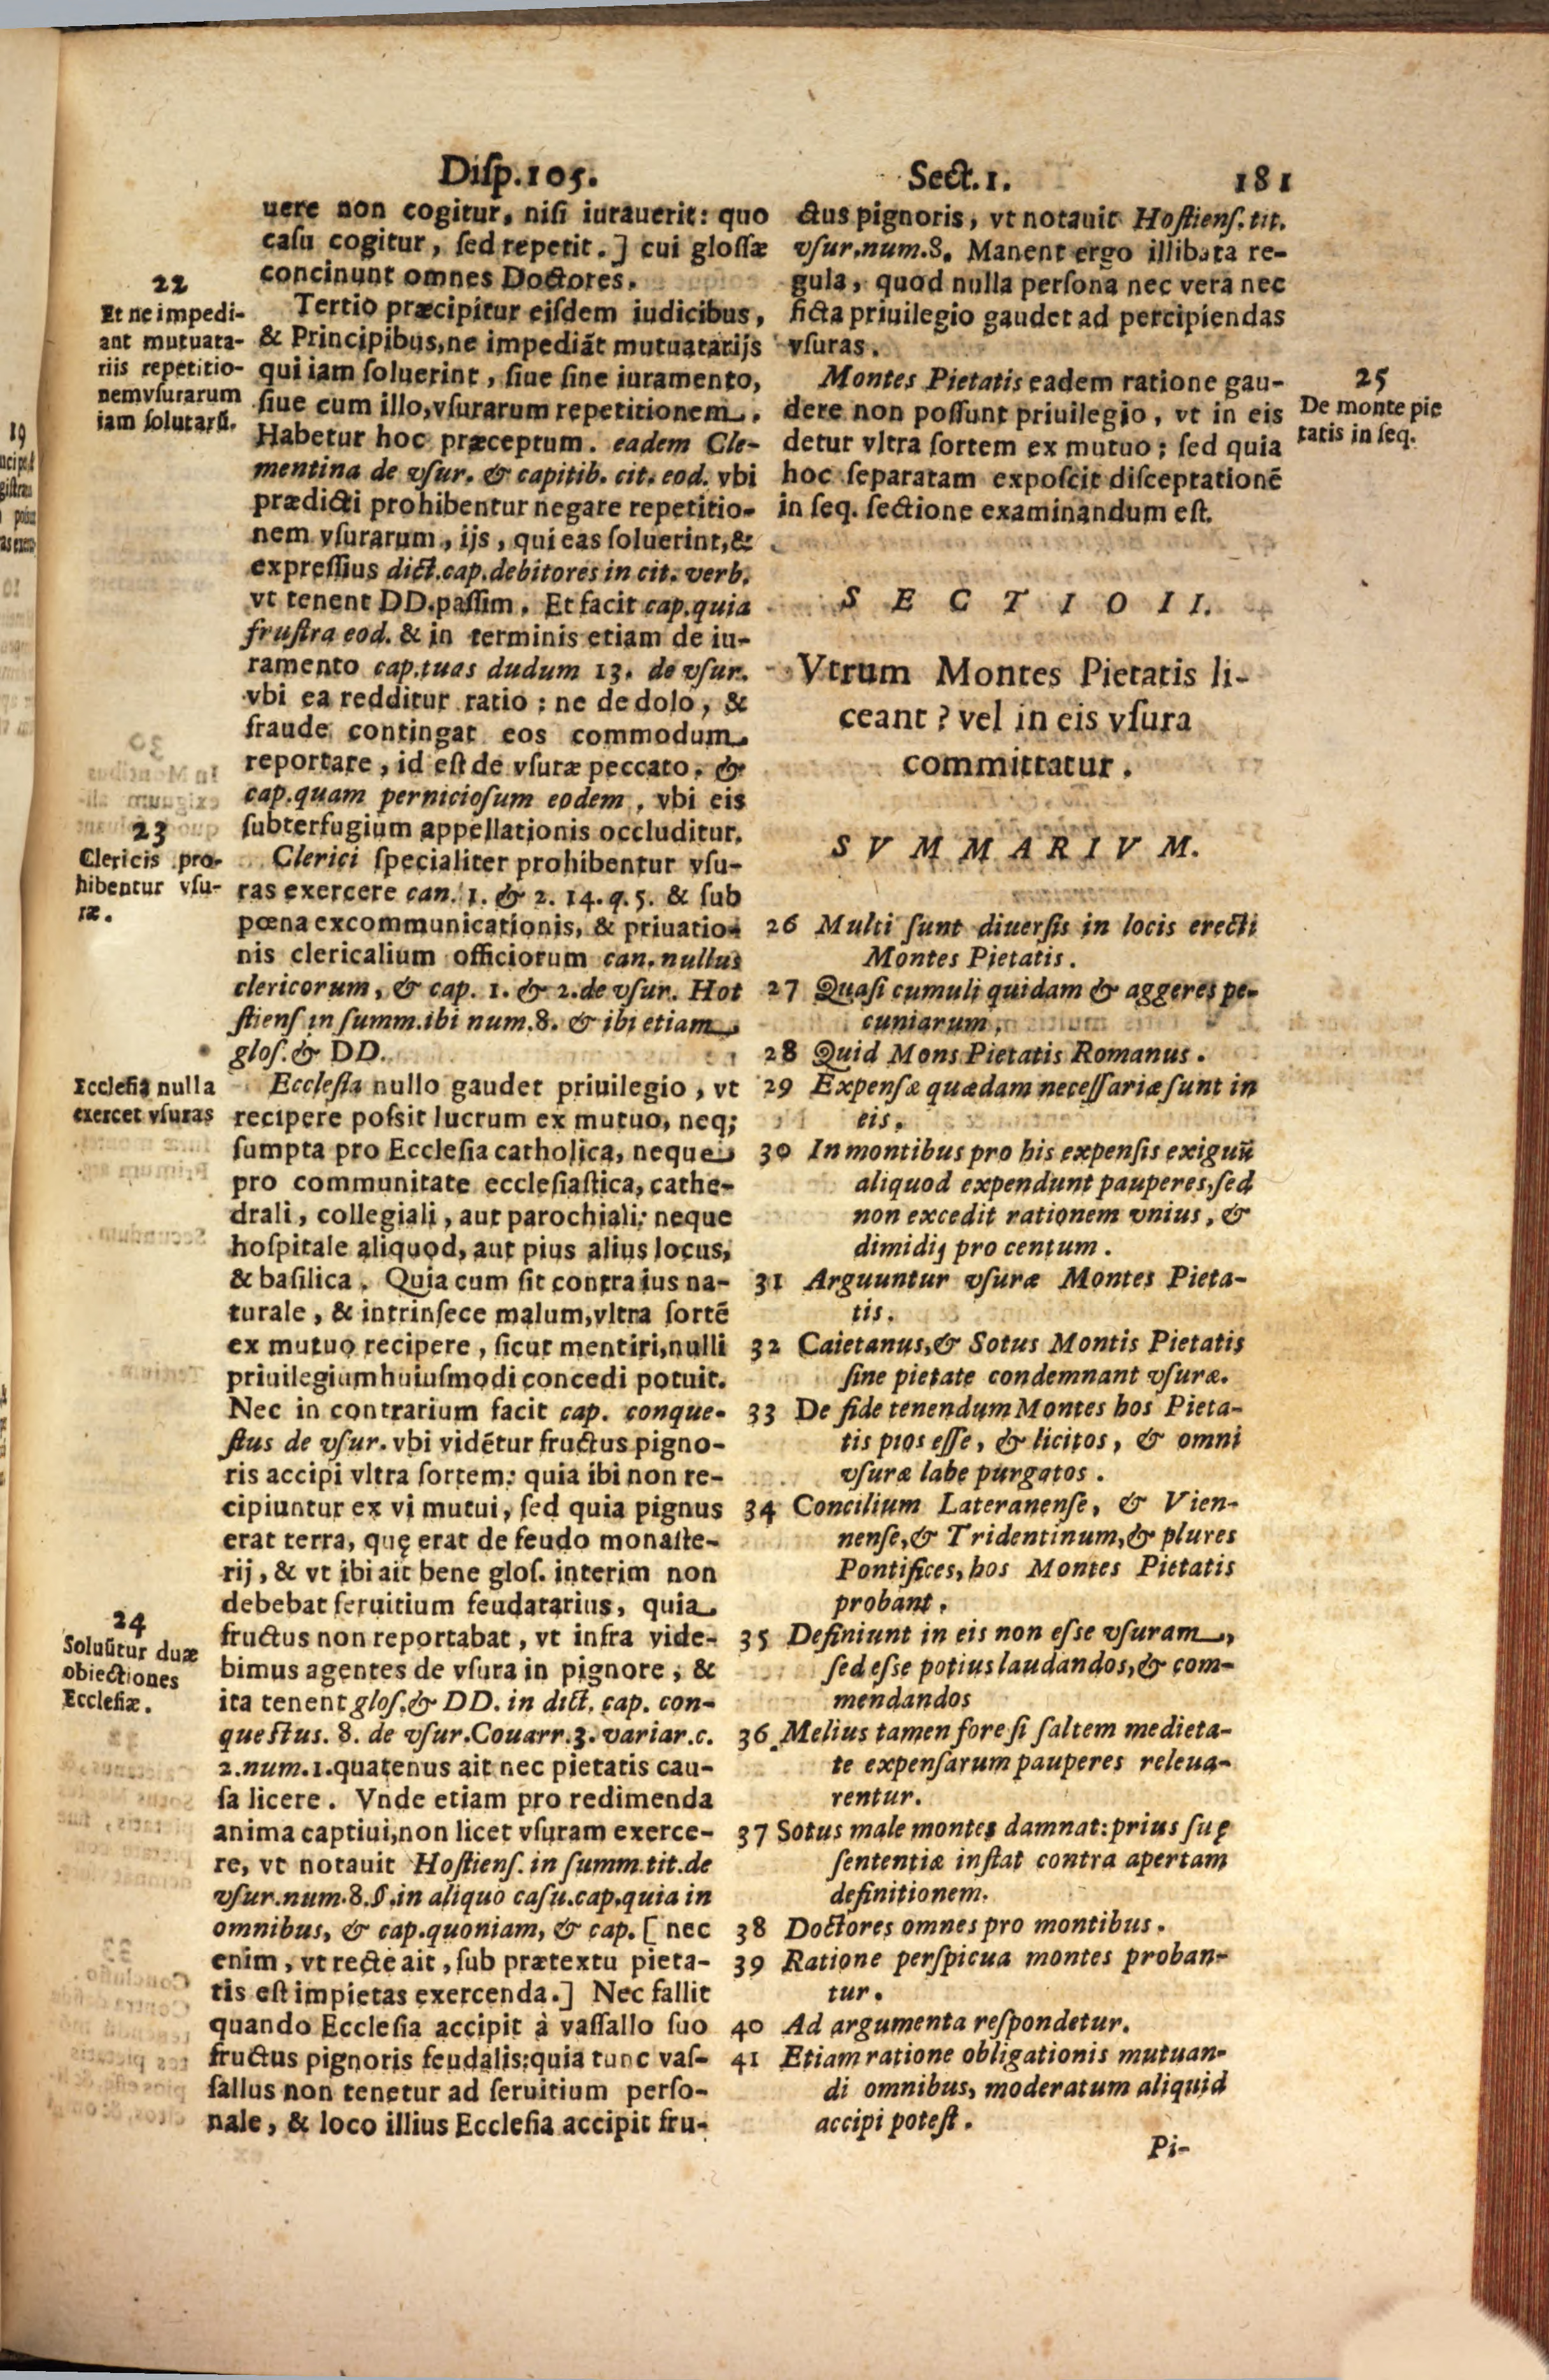 Disp.105. Sect.1. 181
uere non cogitur, nisi iurauerit: quo
casu cogitur, sed repetit.] cui glossæ
concinunt omnes Doctores.
22
Et ne impedi-
ant mutuata-
riis repetitio-
nem vsurarum
iam solutarū.
Tertio præcipitur eisdem iudicibus,
& Principibus, ne impediāt mutuatarijs
qui iam soluerint, siue sine iuramento,
siue cum illo, vsurarum repetitionem.
Habetur hoc præceptum. eadem Cle-
mentina de vsur. & capitib. cit. eod. vbi
prædicti prohibentur negare repetitio-
nem vsurarum, ijs, qui eas soluerint, &
expressius dict. cap. debitores in cit. verb.
vt tenent DD. passim. Et facit cap. quia
frustra eod. & in terminis etiam de iu-
ramento cap. tuas dudum 13. de vsur.
vbi ea redditur ratio: ne de dolo, &
fraude contingat eos commodum
reportare, id est de vsuræ peccato. &
cap. quam perniciosum eodem, vbi eis
subterfugium appellationis occluditur.
23
Clericis pro-
hibentur vsu-
ræ.
Clerici specialiter prohibentur vsu-
ras exercere can. 1. & 2. 14. q. 5. & sub
pœna excommunicationis, & priuatio-
nis clericalium officiorum can. nullus
clericorum, & cap. 1. & 2. de vsur. Hot
stiens in summ. ibi num. 8. & ibi etiam
glos. & DD.
Ecclesia nulla
exercet vsuras
Ecclesia nullo gaudet priuilegio, vt
recipere possit lucrum ex mutuo, neq;
sumpta pro Ecclesia catholica, neque
pro communitate ecclesiastica, cathe-
drali, collegiali, aut parochiali: neque
hospitale aliquod, aut pius alius locus,
& basilica. Quia cum sit contra ius na-
turale, & intrinsece malum, vltra sortē
ex mutuo recipere, sicut mentiri, nulli
priuilegium huiusmodi concedi potuit.
Nec in contrarium facit cap. conque-
stus de vsur. vbi vidētur fructus pigno-
ris accipi vltra sortem: quia ibi non re-
cipiuntur ex vi mutui, sed quia pignus
erat terra, quę erat de feudo monaste-
rij, & vt ibi ait bene glos. interim non
debebat seruitium feudatarius, quia
24
Soluūtur duæ
obiectiones
Ecclesiæ.
fructus non reportabat, vt infra vide-
bimus agentes de vsura in pignore, &
ita tenent glos. & DD. in dict. cap. con-
questus. 8. de vsur. Couarr. 3. variar. c.
2. num. 1. quatenus ait nec pietatis cau-
sa licere. Vnde etiam pro redimenda
anima captiui, non licet vsuram exerce-
re, vt notauit Hostiens. in summ. tit. de
vsur. num. 8. §. in aliquo casu. cap. quia in
omnibus, & cap. quoniam, & cap. [nec
enim, vt recte ait, sub prætextu pieta-
tis est impietas exercenda.] Nec fallit
quando Ecclesia accipit à vassallo suo
fructus pignoris feudalis: quia tunc vas-
sallus non tenetur ad seruitium perso-
nale, & loco illius Ecclesia accipit fru-
ctus pignoris, vt notauit Hostiens. tit.
vsur. num. 8. Manent ergo illibata re-
gula, quod nulla persona nec vera nec
ficta priuilegio gaudet ad percipiendas
vsuras.
25
De monte pie
tatis in seq.
Montes Pietatis eadem ratione gau-
dere non possunt priuilegio, vt in eis
detur vltra sortem ex mutuo; sed quia
hoc separatam exposcit disceptationē
in seq. sectione examinandum est.
SECTIO II.
Vtrum Montes Pietatis li-
ceant? vel in eis vsura
committatur.
SVMMARIVM.
26 Multi sunt diuersis in locis erecti
Montes Pietatis.
27 Quasi cumuli quidam & aggeres pe-
cuniarum.
28 Quid Mons Pietatis Romanus.
29 Expensæ quædam necessariæ sunt in
eis.
30 In montibus pro his expensis exiguū
aliquod expendunt pauperes, sed
non excedit rationem vnius, &
dimidij pro centum.
31 Arguuntur vsuræ Montes Pieta-
tis.
32 Caietanus, & Sotus Montis Pietatis
sine pietate condemnant vsuræ.
33 De fide tenendum Montes hos Pieta-
tis pios esse, & licitos, & omni
vsuræ labe purgatos.
34 Concilium Lateranense, & Vien-
nense, & Tridentinum, & plures
Pontifices, hos Montes Pietatis
probant.
35 Definiunt in eis non esse vsuram,
sed esse potius laudandos, & com-
mendandos
36 Melius tamen fore si saltem medieta-
te expensarum pauperes releua-
rentur.
37 Sotus male montes damnat: prius suę
sententiæ instat contra apertam
definitionem.
38 Doctores omnes pro montibus.
39 Ratione perspicua montes proban-
tur.
40 Ad argumenta respondetur.
41 Etiam ratione obligationis mutuan-
di omnibus, moderatum aliquid
accipi potest.
Pi-